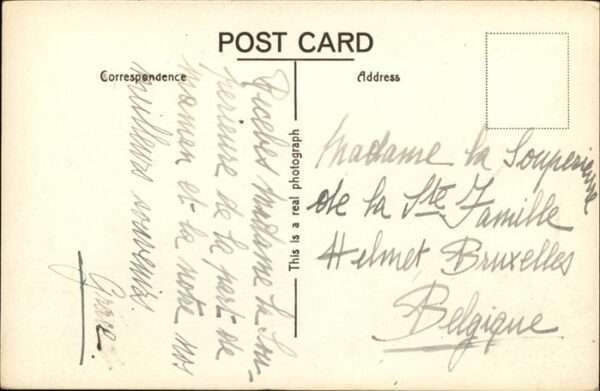 POST CARD
Correspondence
Address
This is a real photograph
Recevez Madame la Sou-
perieure de la part de
maman et la notre nos
meilleurs souvenirs.
Madame la Souperieure
de la Ste Famille
Helmet Bruxelles
Belgique